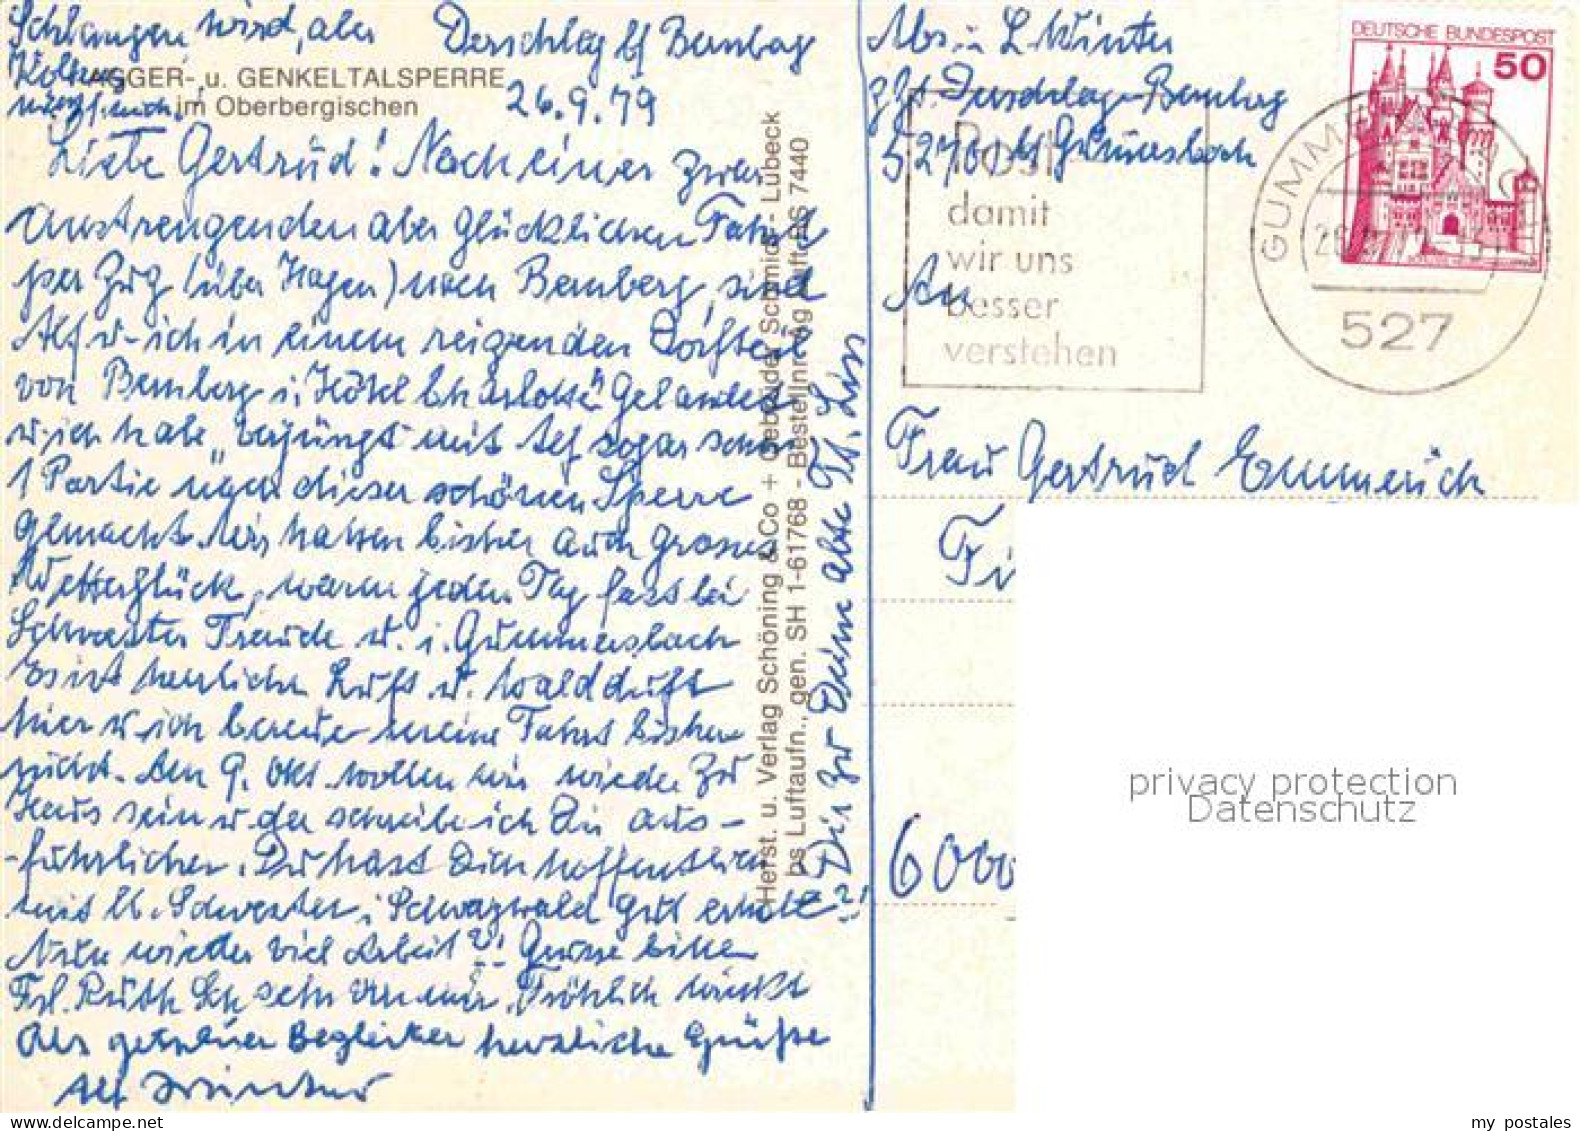 Schlangen wird, aber
AGGER- u. GENKELTALSPERRE
im Oberbergischen
Derschlag b/ Bernberg
26.9.79
Liebe Gertrud! Nach einer zwar
anstrengenden aber glücklichen Fahrt
per Zug (über Hagen) nach Bernberg sind
Alf u. ich in einem reizenden Dorfteil
von Bernberg i. Hotel Charlotte gelandet
u. ich habe, verjüngt mit Alf sogar schon
1 Partie nach dieser schönen Sperre
gemacht. Wir hatten bisher auch grosses
Wetterglück, waren jeden Tag fast bei
Schwester Traude u. i. Gummersbach
Es ist herrliche Luft u. Waldduft
hier u. ich bereue meine Fahrt bisher
nicht. Am 9. Okt. wollen wir wieder zu
Haus sein u. da schreibe ich Dir aus-
führlicher. Du hast Dich hoffentlich
mit lb. Schwester i. Schwarzwald gut erholt?!
Nun wieder viel Arbeit?! Grüsse bitte
Frl. Ruth sehr von mir. Fröhlich winkt
Dir zu Deine alte Fr. Lis
Als getreuer Begleiter herzliche Grüße
Alf Winter
Herst. u. Verlag Schöning & Co + Gebrüder Schmidt - Lübeck
bs Luftaufn., gen. SH 1-61768 - Bestellnr. Ag Luft BS 7440
Abs.: L. Winter
z.Zt. Derschlag-Bernberg
5270 b/ Gummersbach
damit
wir uns
besser
verstehen
DEUTSCHE BUNDESPOST
50
GUMME
527
An
Frau Gertrud Emmerich
6000
privacy protection
Datenschutz
my postales